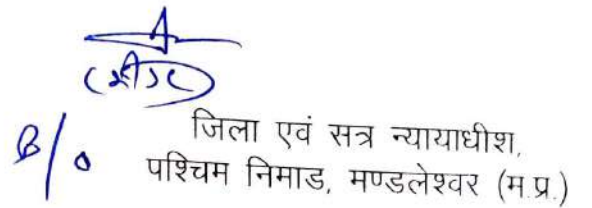 B/o
जिला एवं सत्र न्यायाधीश,
पश्चिम निमाड, मण्डलेश्वर (म.प्र.)